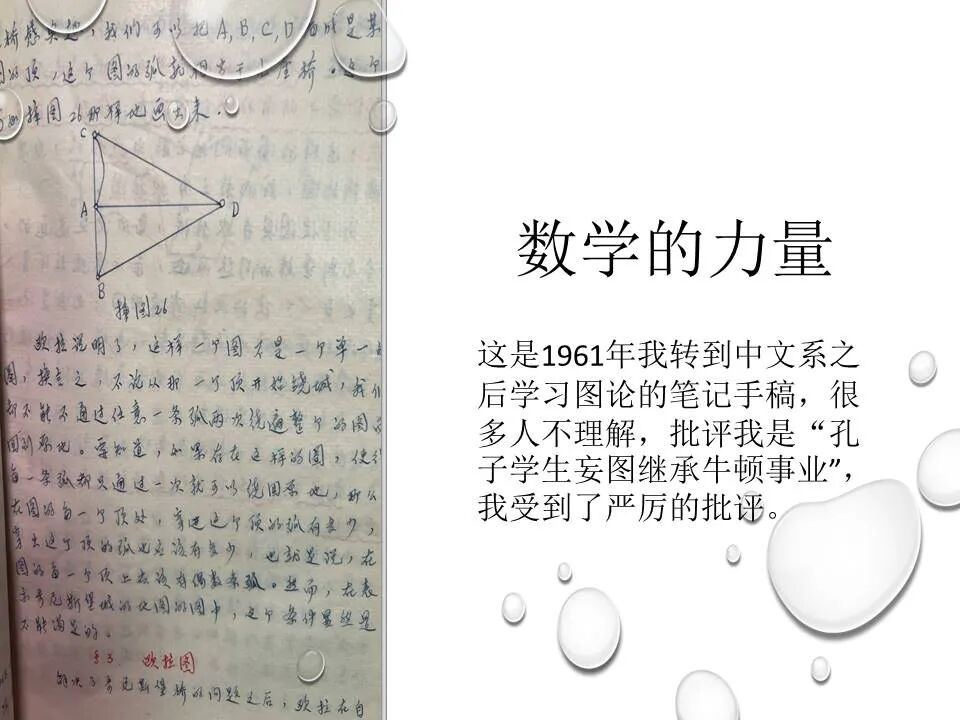 桥感兴趣,我们可以把A,B,C,D看成是某
图的顶,这个图的弧就相当于七座桥。这个
插图26那样地画出来.
C
A
D
B
插图26
欧拉说明了,这样一个图不是一个单一的
圈,换言之,不论从那一个顶开始绕城,我们
都不能不通过任意一条弧两次绕遍整个的图而
回到原地。要知道,如果存在这样的圈,使得
每一条弧都只通过一次就可以绕回原地,那么
在图的每一个顶处,穿进这个顶的弧有多少,
穿出这个顶的弧也应该有多少,也就是说,在
图的每一个顶上应该有偶数条弧。然而,在表
示哥尼斯堡城的地图的图中,这个条件显然是
不能满足的。
§3. 欧拉图
解决了哥尼斯堡桥的问题之后,欧拉在自
数学的力量
这是1961年我转到中文系之
后学习图论的笔记手稿,很
多人不理解,批评我是“孔
子学生妄图继承牛顿事业”,
我受到了严厉的批评。